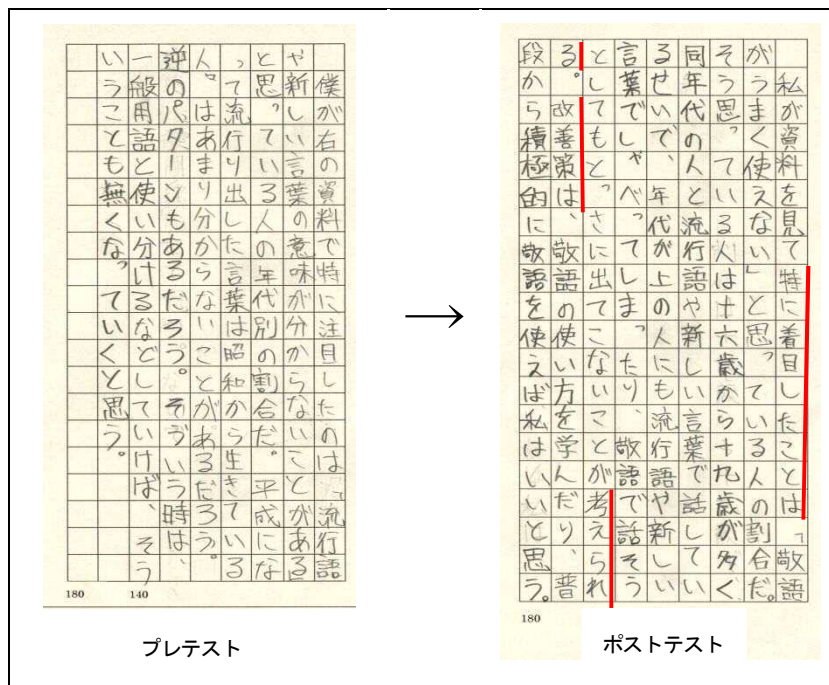 僕が右の資料で特に注目したのは「流行語
や新しい言葉の意味が分からないことがある」
と思っている人の年代別の割合だ。平成にな
って流行り出した言葉は昭和から生きている
人々はあまり分からないことがあるだろう。
逆のパターンもあるだろう。そういう時は、
一般用語と使い分けるなどしていけば、そう
いうことも無くなっていくと思う。
180 140
プレテスト
→
私が資料を見て特に着目したことは「敬語
がうまく使えない」と思っている人の割合だ。
そう思っている人は十六歳から十九歳が多く
同年代の人と流行語や新しい言葉で話してい
るせいで、年代が上の人にも流行語や新しい
言葉でしゃべってしまったり、敬語で話そう
としてもとっさに出てこないことが考えられ
る。改善策は、敬語の使い方を学んだり、普
段から積極的に敬語を使えば私はいいと思う。
180
ポストテスト